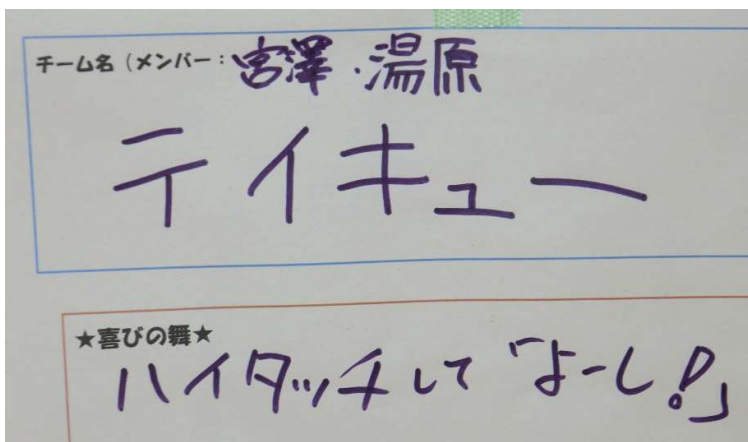 チーム名（メンバー：宮澤・湯原
テイキュー
★喜びの舞★
ハイタッチして「よーし！」